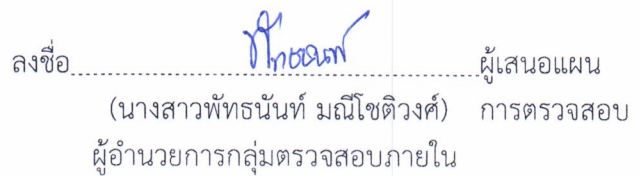 ลงชื่อ........................................................ผู้เสนอแผน
(นางสาวพัทธนันท์ มณีโชติวงศ์) การตรวจสอบ
ผู้อำนวยการกลุ่มตรวจสอบภายใน